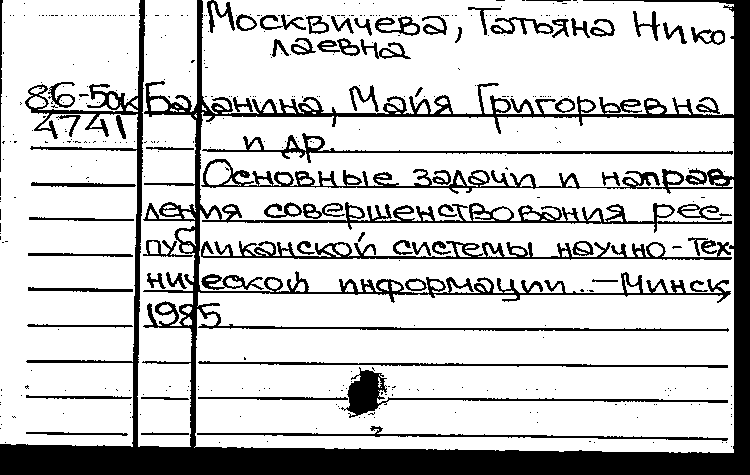 Москвичева, Татьяна Нико-
лаевна
86-5ок Баданина, Майя Григорьевна
4741
и др.
Основные задачи и направ-
ления совершенствования рес-
публиканской системы научно-тех-
нической информации...-Минск,
1985.